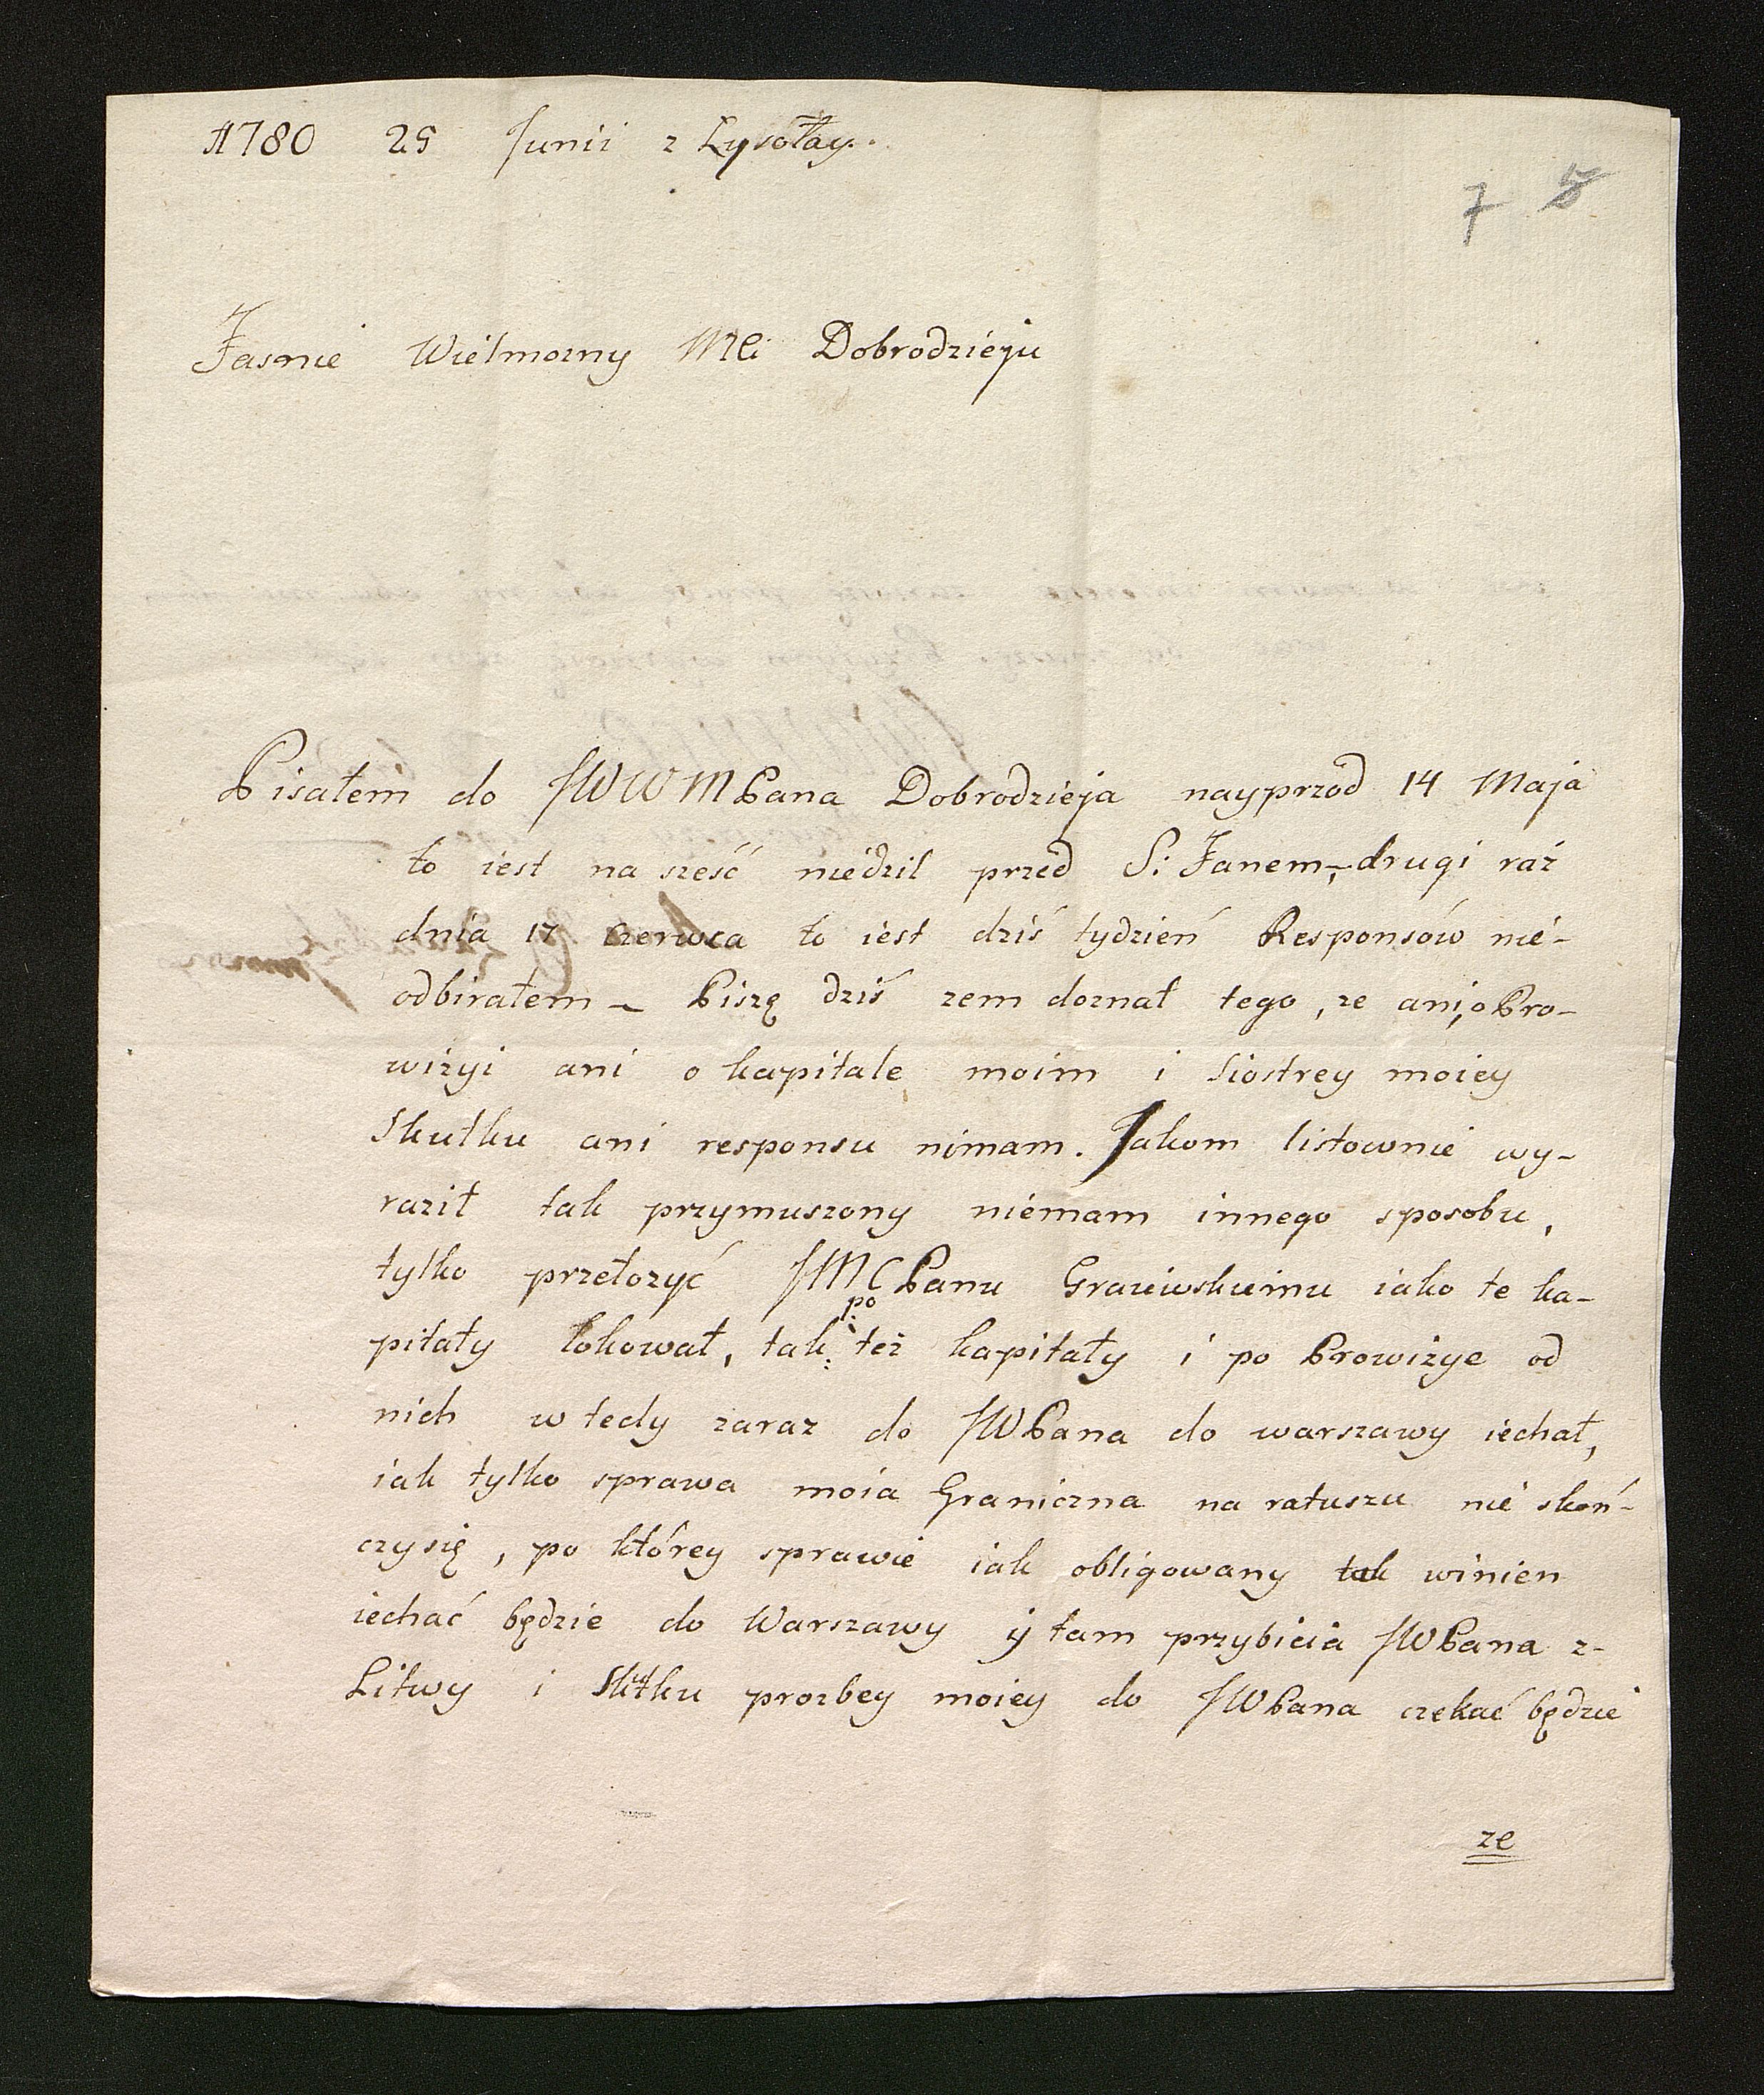 1780 25 Junii z Łysołay.
7 5
Jasnie Wielmozny Mci Dobrodzieju
Pisałem do JWWMPana Dobrodzieja nayprzod 14 Maja
to iest na sześć niedzil przed S: Janem, drugi raź
dnia 17 czerwca to iest dziś tydzień Responsów nie-
odbirałem – Piszę dziś zem doznał tego, ze ani, o Pro-
wizyi ani o kapitale moim i Siostrey moiey
Skutku ani responsu nimam. Jakom listownie wy-
raził tak przymuszony niemam innego sposobu,
tylko przełozyć JMCPanu Graiewskiemu iako te ka-
pitały lokował, tak po też kapitały i po Prowizye od
nich wtedy zaraz do JWPana do warszawy iechał,
iak tylko sprawa moia Graniczna na ratuszu nie skoń-
czy się, po którey sprawie iak obligowany tak winien
iechać będzie do Warszawy ij tam przybicia JWPana z-
Litwy i Skutku prozbey moiey do JWPana czekać będzie
ze